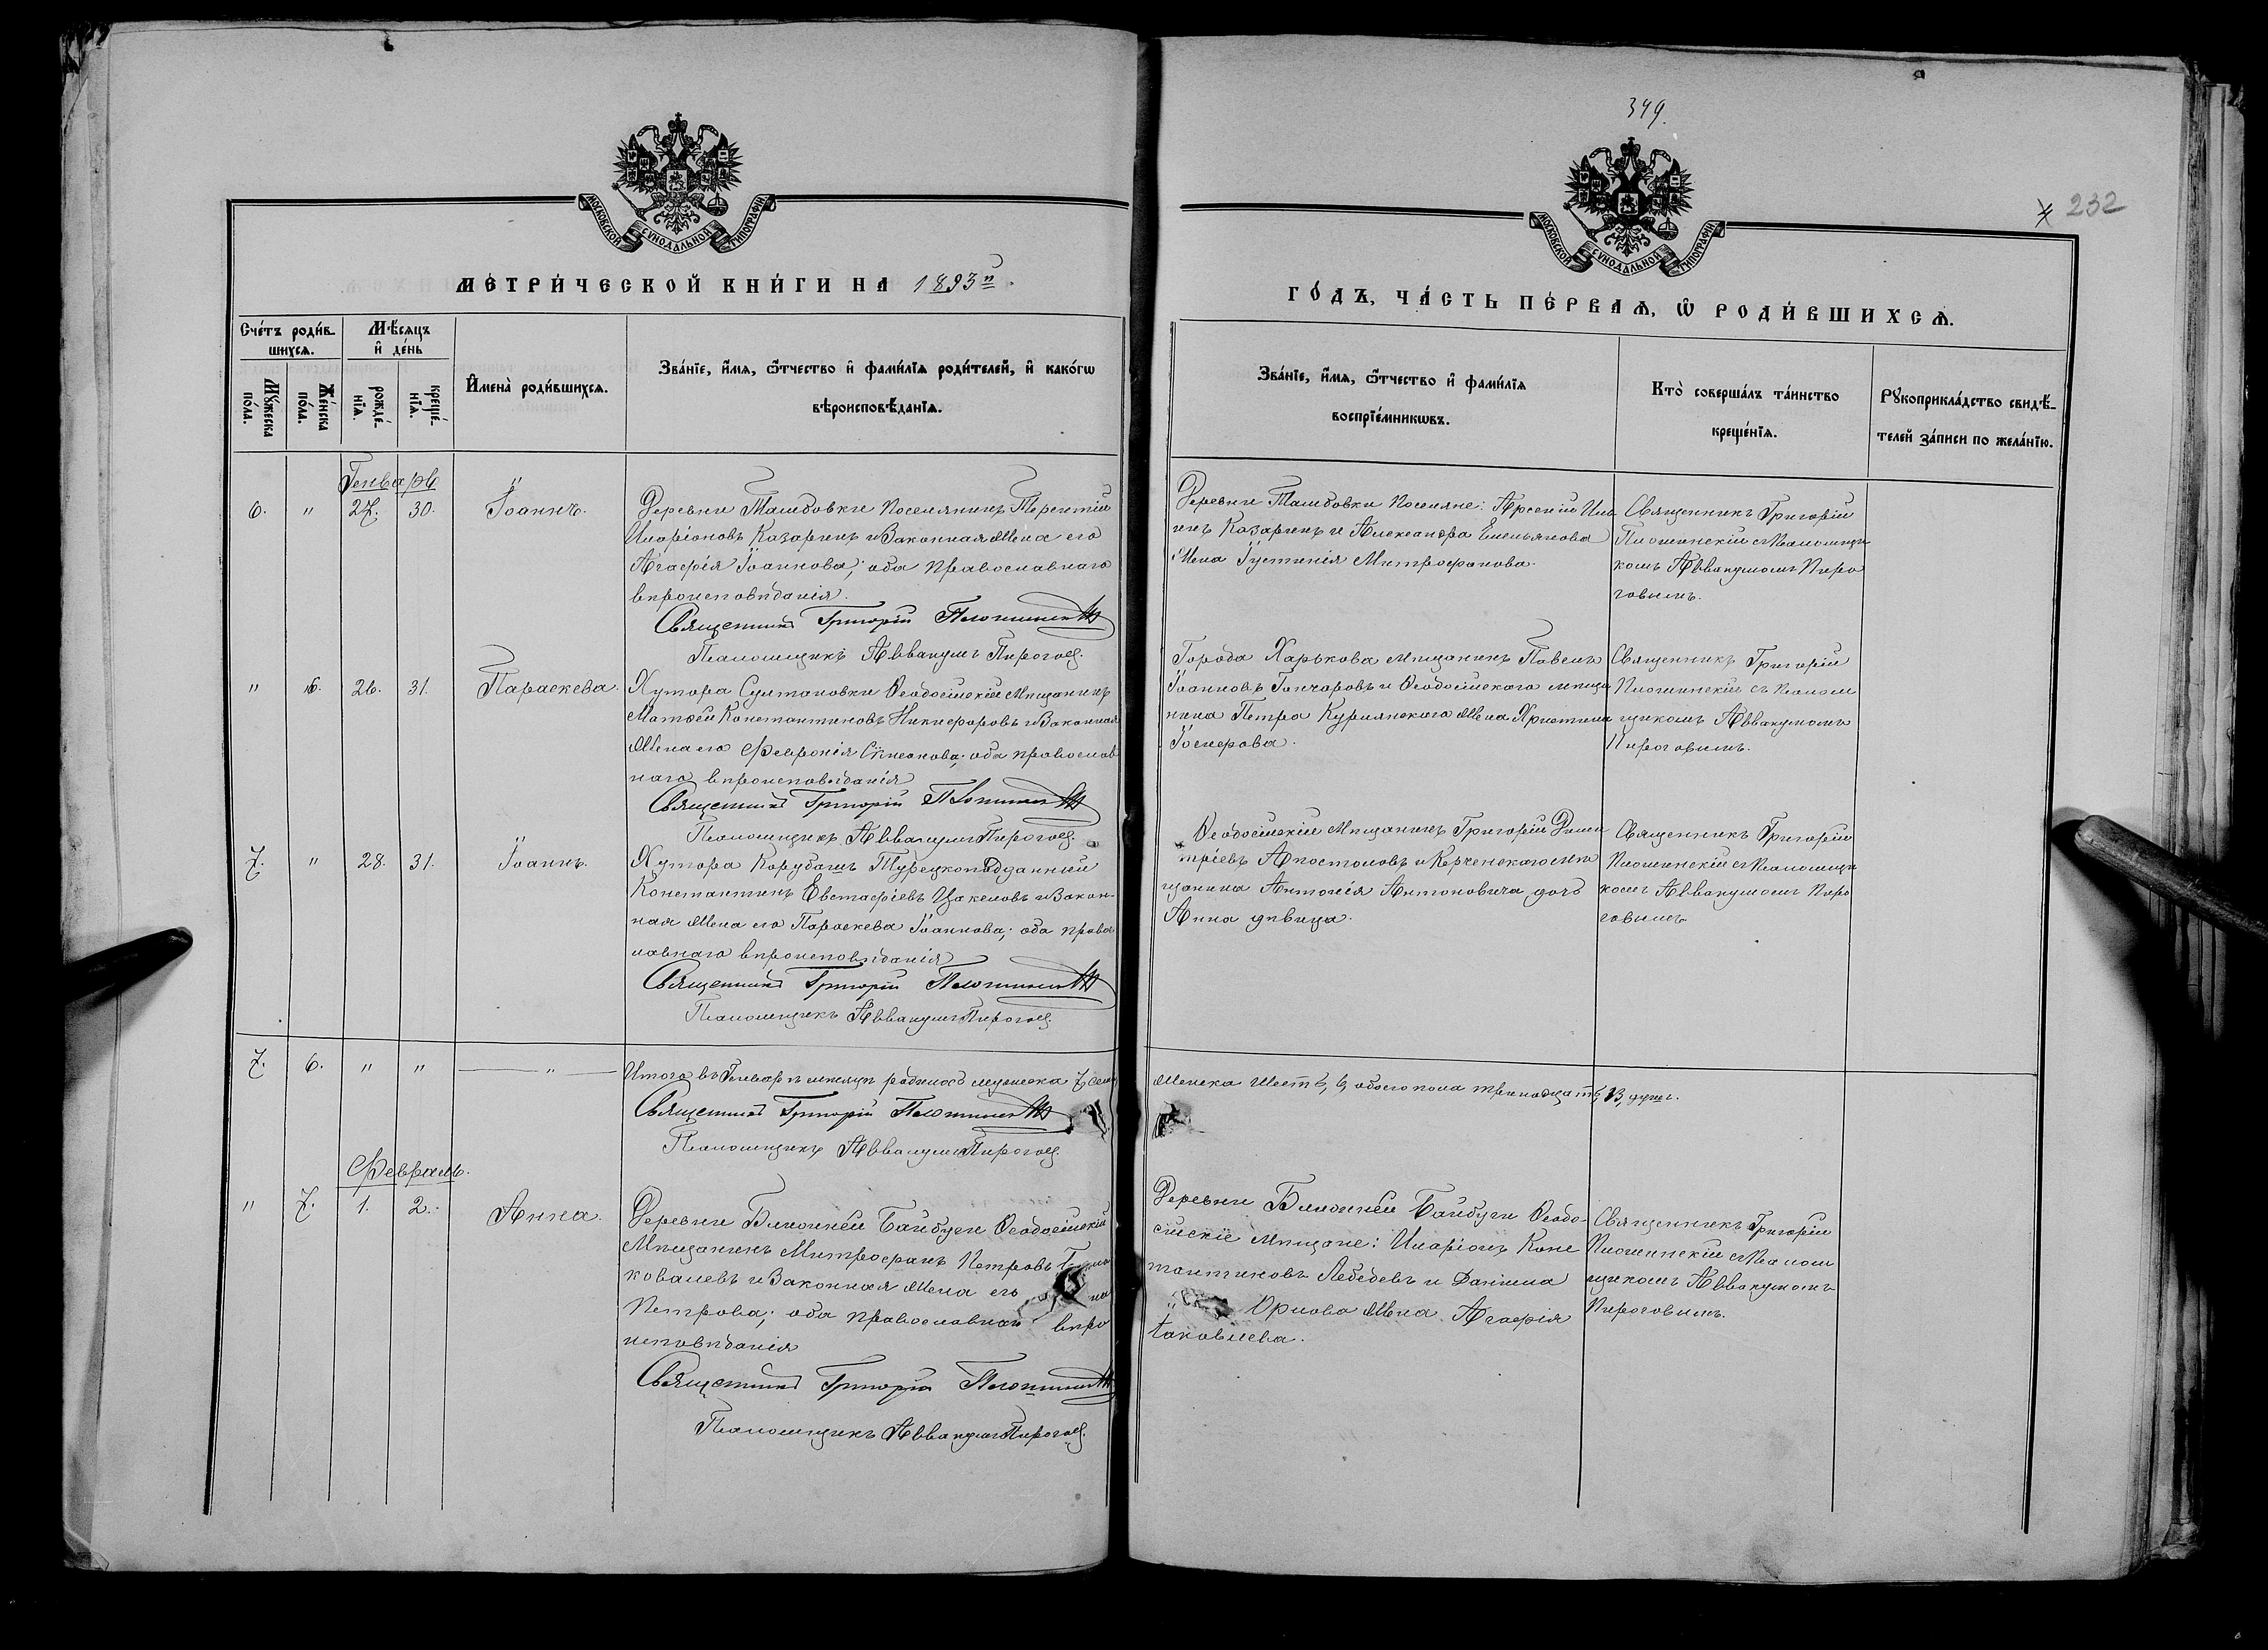 349.
МОСКОВСКОЙ СѴНОДАЛЬНОЙ ТИПОГРАФІИ
МОСКОВСКОЙ СѴНОДАЛЬНОЙ ТИПОГРАФІИ
232
МЕТРИ́ЧЕСКОЙ КНИ́ГИ НА 1893й.
ГО́ДЪ, ЧА́СТЬ ПЕ́РВАѦ, Ѡ РОДИ́ВШИХСѦ.
Сче́тъ роди́в-
шихсѧ.
Мꙋ́жеска по́ла.
Же́нска по́ла.
Мѣ́сяцъ и҆ де́нь
рожде́-
нїѧ.
креще́-
нїѧ.
И҆мена̀ роди́вшихсѧ.
Зва́нїе, и҆́мѧ, ѻ҆́тчество и҆ фами́лїѧ роди́телей, и҆ како́гѡ
вѣроисповѣ́данїѧ.
Зва́нїе, и҆́мѧ, ѻ҆́тчество и҆ фами́лїѧ
воспрїе́мникѡвъ.
Кто̀ соверша́лъ та́инство
креще́нїѧ.
Рꙋкоприкла́дство свидѣ́-
телей за́писи по жела́нїю.
Генварь
6. " 27. 30. Іоаннъ.
Деревни Ташбовки поселянинъ Терентій
Иларіоновъ Казаринъ и законная жена его
Агафія Іоаннова; оба православнаго
вѣроисповѣданія.
Священникъ Григорій
Псаломщикъ Аввакумъ Пироговъ.
Деревни Ташбовки поселяне: Арсеній Иль
инъ Казаринъ и Александра Емельянова
жена Іустинія Митрофанова.
Священникъ Григорій
съ псаломщи
комъ Аввакумомъ Пиро
говымъ.
" 6. 26. 31. Параскева.
Хутора Султановки Ѳеодосійскій мѣщанинъ
Матѳей Константиновъ Никифоровъ и законная
жена его Февронія Сѵмеонова; оба православ
наго вѣроисповѣданія
Священникъ Григорій
Псаломщикъ Аввакумъ Пироговъ.
Города Харькова мѣщанинъ Павелъ
Іоанновъ Гончаровъ и Ѳеодосійскаго мѣща
нина Петра Курлянскаго жена Христина
Іосифова.
Священникъ Григорій
съ псалом
щикомъ Аввакумомъ
Пироговымъ.
7. " 28. 31. Іоаннъ.
Хутора Корубашъ Турецкоподданный
Константинъ Евстафіевъ Цакеловъ и закон-
ная жена его Параскева Іоаннова; оба право
славнаго вѣроисповѣданія
Священникъ Григорій
Псаломщикъ Аввакумъ Пироговъ.
Ѳеодосійскій мѣщанинъ Григорій Дими
тріевъ Апостоловъ и Керченскаго мѣ
щанина Антонія Антоновича дочь
Анна дѣвица.
Священникъ Григорій
съ псаломщи
комъ Аввакумомъ Пиро
говымъ
7. 6. " " "
Итого въ Генварѣ мѣсяцѣ родилось мужеска 7, семь
женска шесть, 6, обоего пола тринадцать, 13, душъ.
Священникъ Григорій
Псаломщикъ Аввакумъ Пироговъ.
Февраль.
" 7. 1. 2. Анна.
Деревни Ближней Байбуги Ѳеодосійскій
мѣщанинъ Митрофанъ Петровъ
ковалевъ и законная жена его
Петрова; оба православнаго вѣро
исповѣданія
Священникъ Григорій
Псаломщикъ Аввакумъ Пироговъ.
Деревни Ближней Байбуги Ѳеодо-
сійскіе мѣщане: Иларіонъ Конс
тантиновъ Лебедевъ и Даніила
Орлова жена Агафія
Іаковлева.
Священникъ Григорій
съ псалом
щикомъ Аввакумомъ
Пироговымъ.